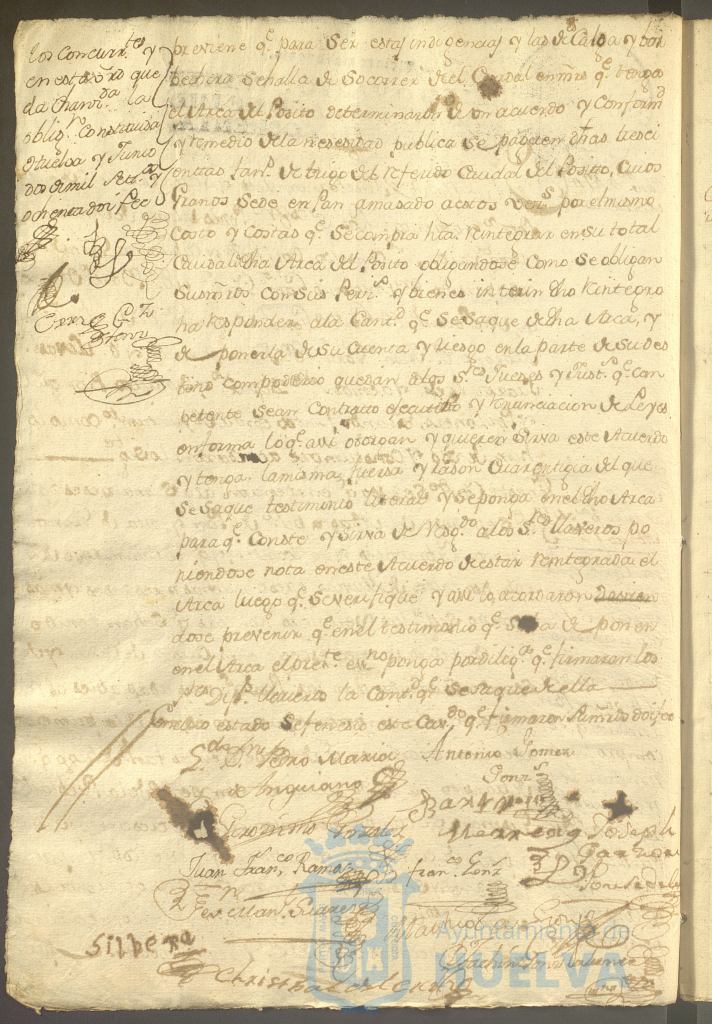 los Concurr.tes y
en este orn que
da Chanz.da la
oblig.n Constituida
Huelva y Junio
dos de mil Set.s y
ochenta dos fee
previene q.e para Ser estas indigencias y las de
Se halla de Socorrer del Caudal q.e tenga
el Arca del Posito determinaron de un acuerdo y Conform.d
y remedio de la nesesidad publica Se paguen dhas tresci
entas fan.s de trigo del Referido Caudal del Posito, Cuios
Granos Se de en Pan amasado a estos Vez.s por el mismo
Costo y Costas q.e Se compra hta. Reintegrar en su total
Caudal dha Arca del Posito obligandose como se obligan
Sus mrds con Sus Pers.s y bienes interin dho Reintegro
ha Responder a la Cant.d q.e Se Saque de dha Arca, y
de ponerla de Su Cuenta y riesgo en la parte de Su des
tino con poderio que dan a los S.res Jueses y Just.s q.e com
petente Sean Contrato executibo y renunciacion de Leyes
en forma lo q.e asi otorgan y quieren Sirva este Acuerdo
y tenga la misma fuersa y rason Guarentigia del que
Se Saque testimonio literal y Se ponga en el dho Arca
para q.e Conste y Sirva de Resg.do a los S.res Llaveros po
niendose nota en este Acuerdo de estar reintegrada el
Arca luego q.e Se verifique y asi lo acordaron
dose prevenir q.e en el testimonio q.e Se ha de poner
en el Arca el pres.te es.no ponga por dilig.a q.e firmaron los
S.res Dip.s Llaveros la Cant.d q.e Se Saque de ella
en cuio estado Se fenesio este Cav.do q.e firmaron Sus mrds doi fee
D. Pedro Maria
de Anguiano
Antonio Gomez
Gonz.s
Geronimo Gonzalez
Joseph
Garzon
Juan Fran.co Ramos
Fran.co Gonz
Man.l Suarez
Silbera
Christobal del
Ayuntamiento de
HUELVA